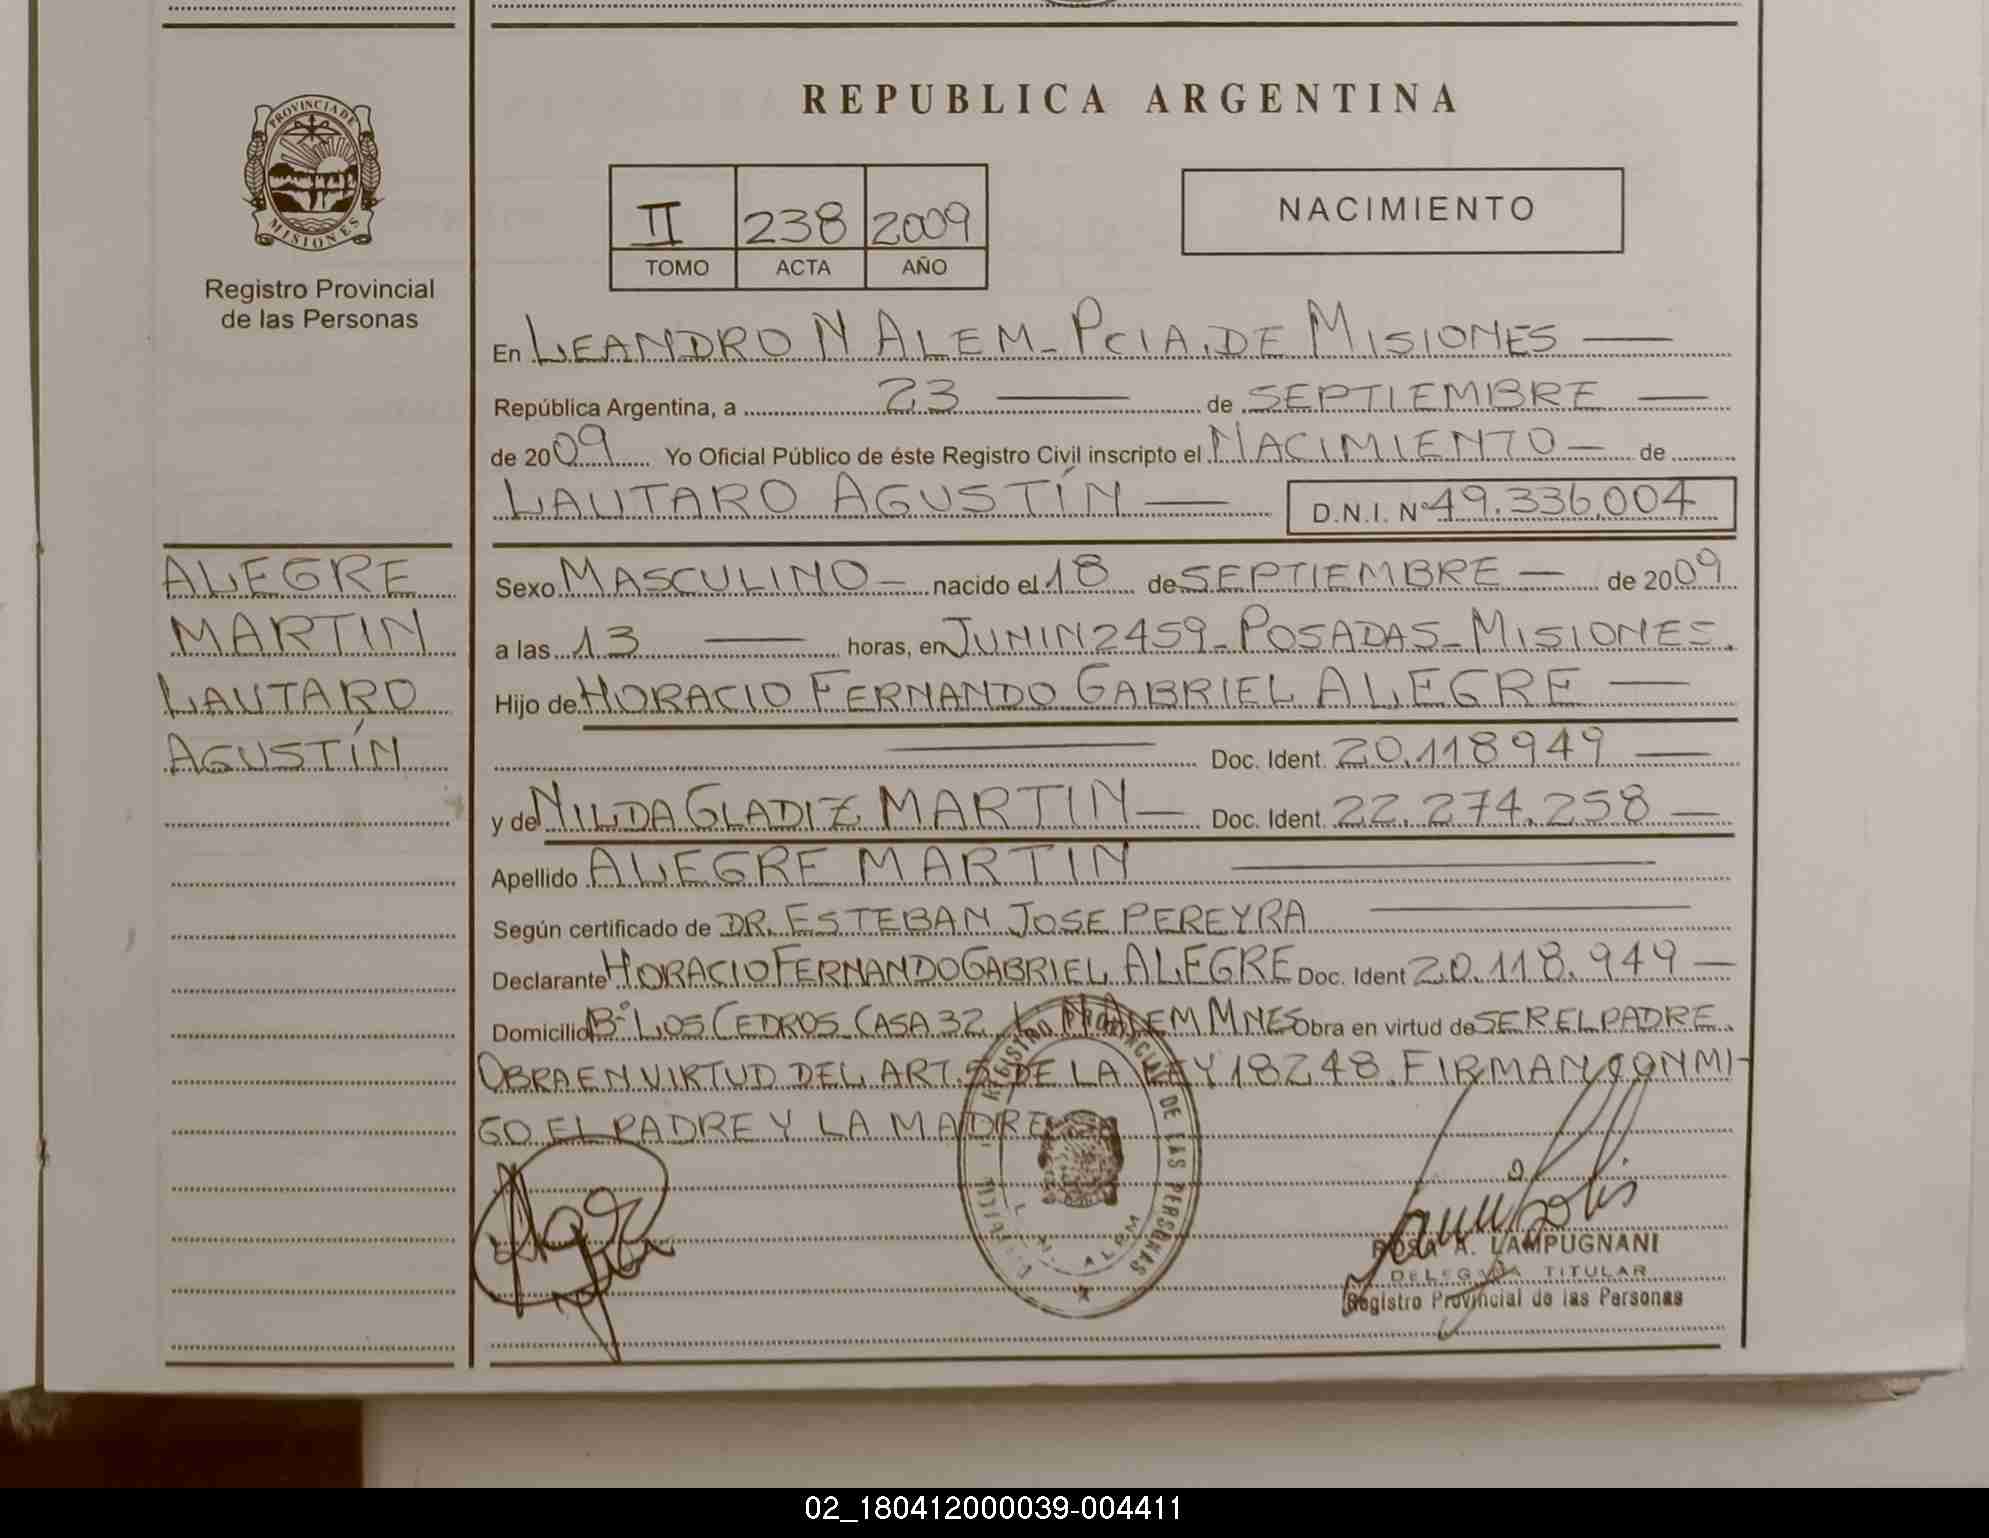 PROVINCIA DE
MISIONES
Registro Provincial
de las Personas
REPUBLICA ARGENTINA
II 238 2009
TOMO ACTA AÑO
NACIMIENTO
En LEANDRO N ALEM - PCIA. DE MISIONES —
República Argentina, a 23 — de SEPTIEMBRE —
de 2009 Yo Oficial Público de éste Registro Civil inscripto el NACIMIENTO — de
LAUTARO AGUSTÍN — D.N.I. Nº 49.336.004
ALEGRE
MARTIN
LAUTARO
AGUSTÍN
Sexo MASCULINO — nacido el 18 de SEPTIEMBRE — de 2009
a las 13 — horas, en JUNIN 2459 - POSADAS - MISIONES.
Hijo de HORACIO FERNANDO GABRIEL ALEGRE —
— Doc. Ident. 20.118949 —
y de NILDA GLADIZ MARTIN — Doc. Ident. 22.274.258 —
Apellido ALEGRE MARTIN —
Según certificado de DR. ESTEBAN JOSE PEREYRA —
Declarante HORACIO FERNANDO GABRIEL ALEGRE Doc. Ident 20.118.949 —
Domicilio Bº LOS CEDROS CASA 32 L. N ALEM MNES Obra en virtud de SER EL PADRE.
OBRA EN VIRTUD DEL ART. 5 DE LA LEY 18248. FIRMAN CONMI-
GO EL PADRE Y LA MADRE
REGISTRO PROVINCIAL DE LAS PERSONAS
L. N. ALEM
ROSA A. LAMPUGNANI
DELEGADA TITULAR
Registro Provincial de las Personas
02_180412000039-004411